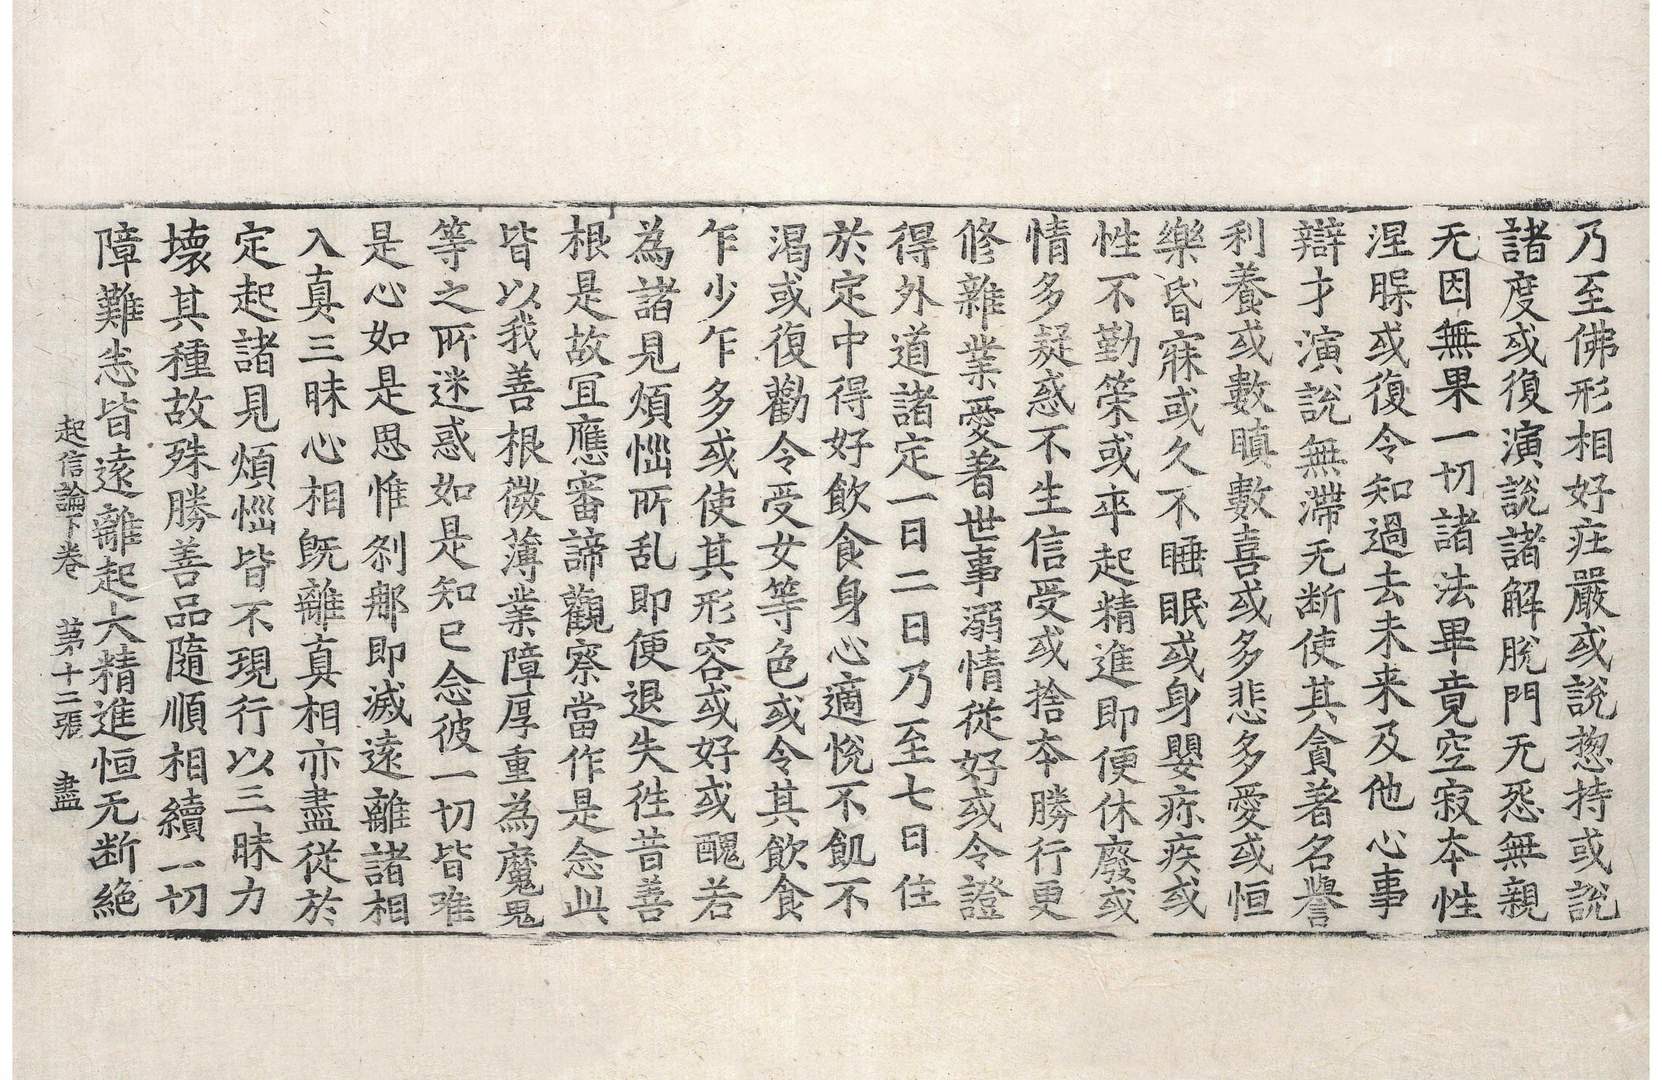 乃至佛形相好庄嚴或說惣持或說
諸度或復演說諸解脫門无怨無親
无因無果一切諸法畢竟空寂本性
涅槃或復令知過去未来及他心事
辯才演說無滯无断使其貪著名譽
利養或數瞋數喜或多悲多愛或恒
樂昏寐或久不睡眠或身嬰疹疾或
性不勤策或卒起精進即便休廢或
情多疑惑不生信受或捨本勝行更
修雜業愛著世事溺情従好或令證
得外道諸定一日二日乃至七日住
於定中得好飲食身心適悅不飢不
渴或復勸令受女等色或令其飲食
乍少乍多或使其形容或好或醜若
為諸見煩惱所乱即便退失徃昔善
根是故宜應審諦觀察當作是念此
皆以我善根微薄業障厚重為魔鬼
等之所迷惑如是知已念彼一切皆唯
是心如是思惟刹那即滅遠離諸相
入真三昧心相旣離真相亦盡從於
定起諸見煩惱皆不現行以三昧力
壞其種故殊勝善品隨順相續一切
障難悉皆遠離起大精進恒无断絶
起信論下卷 第十二張 盡